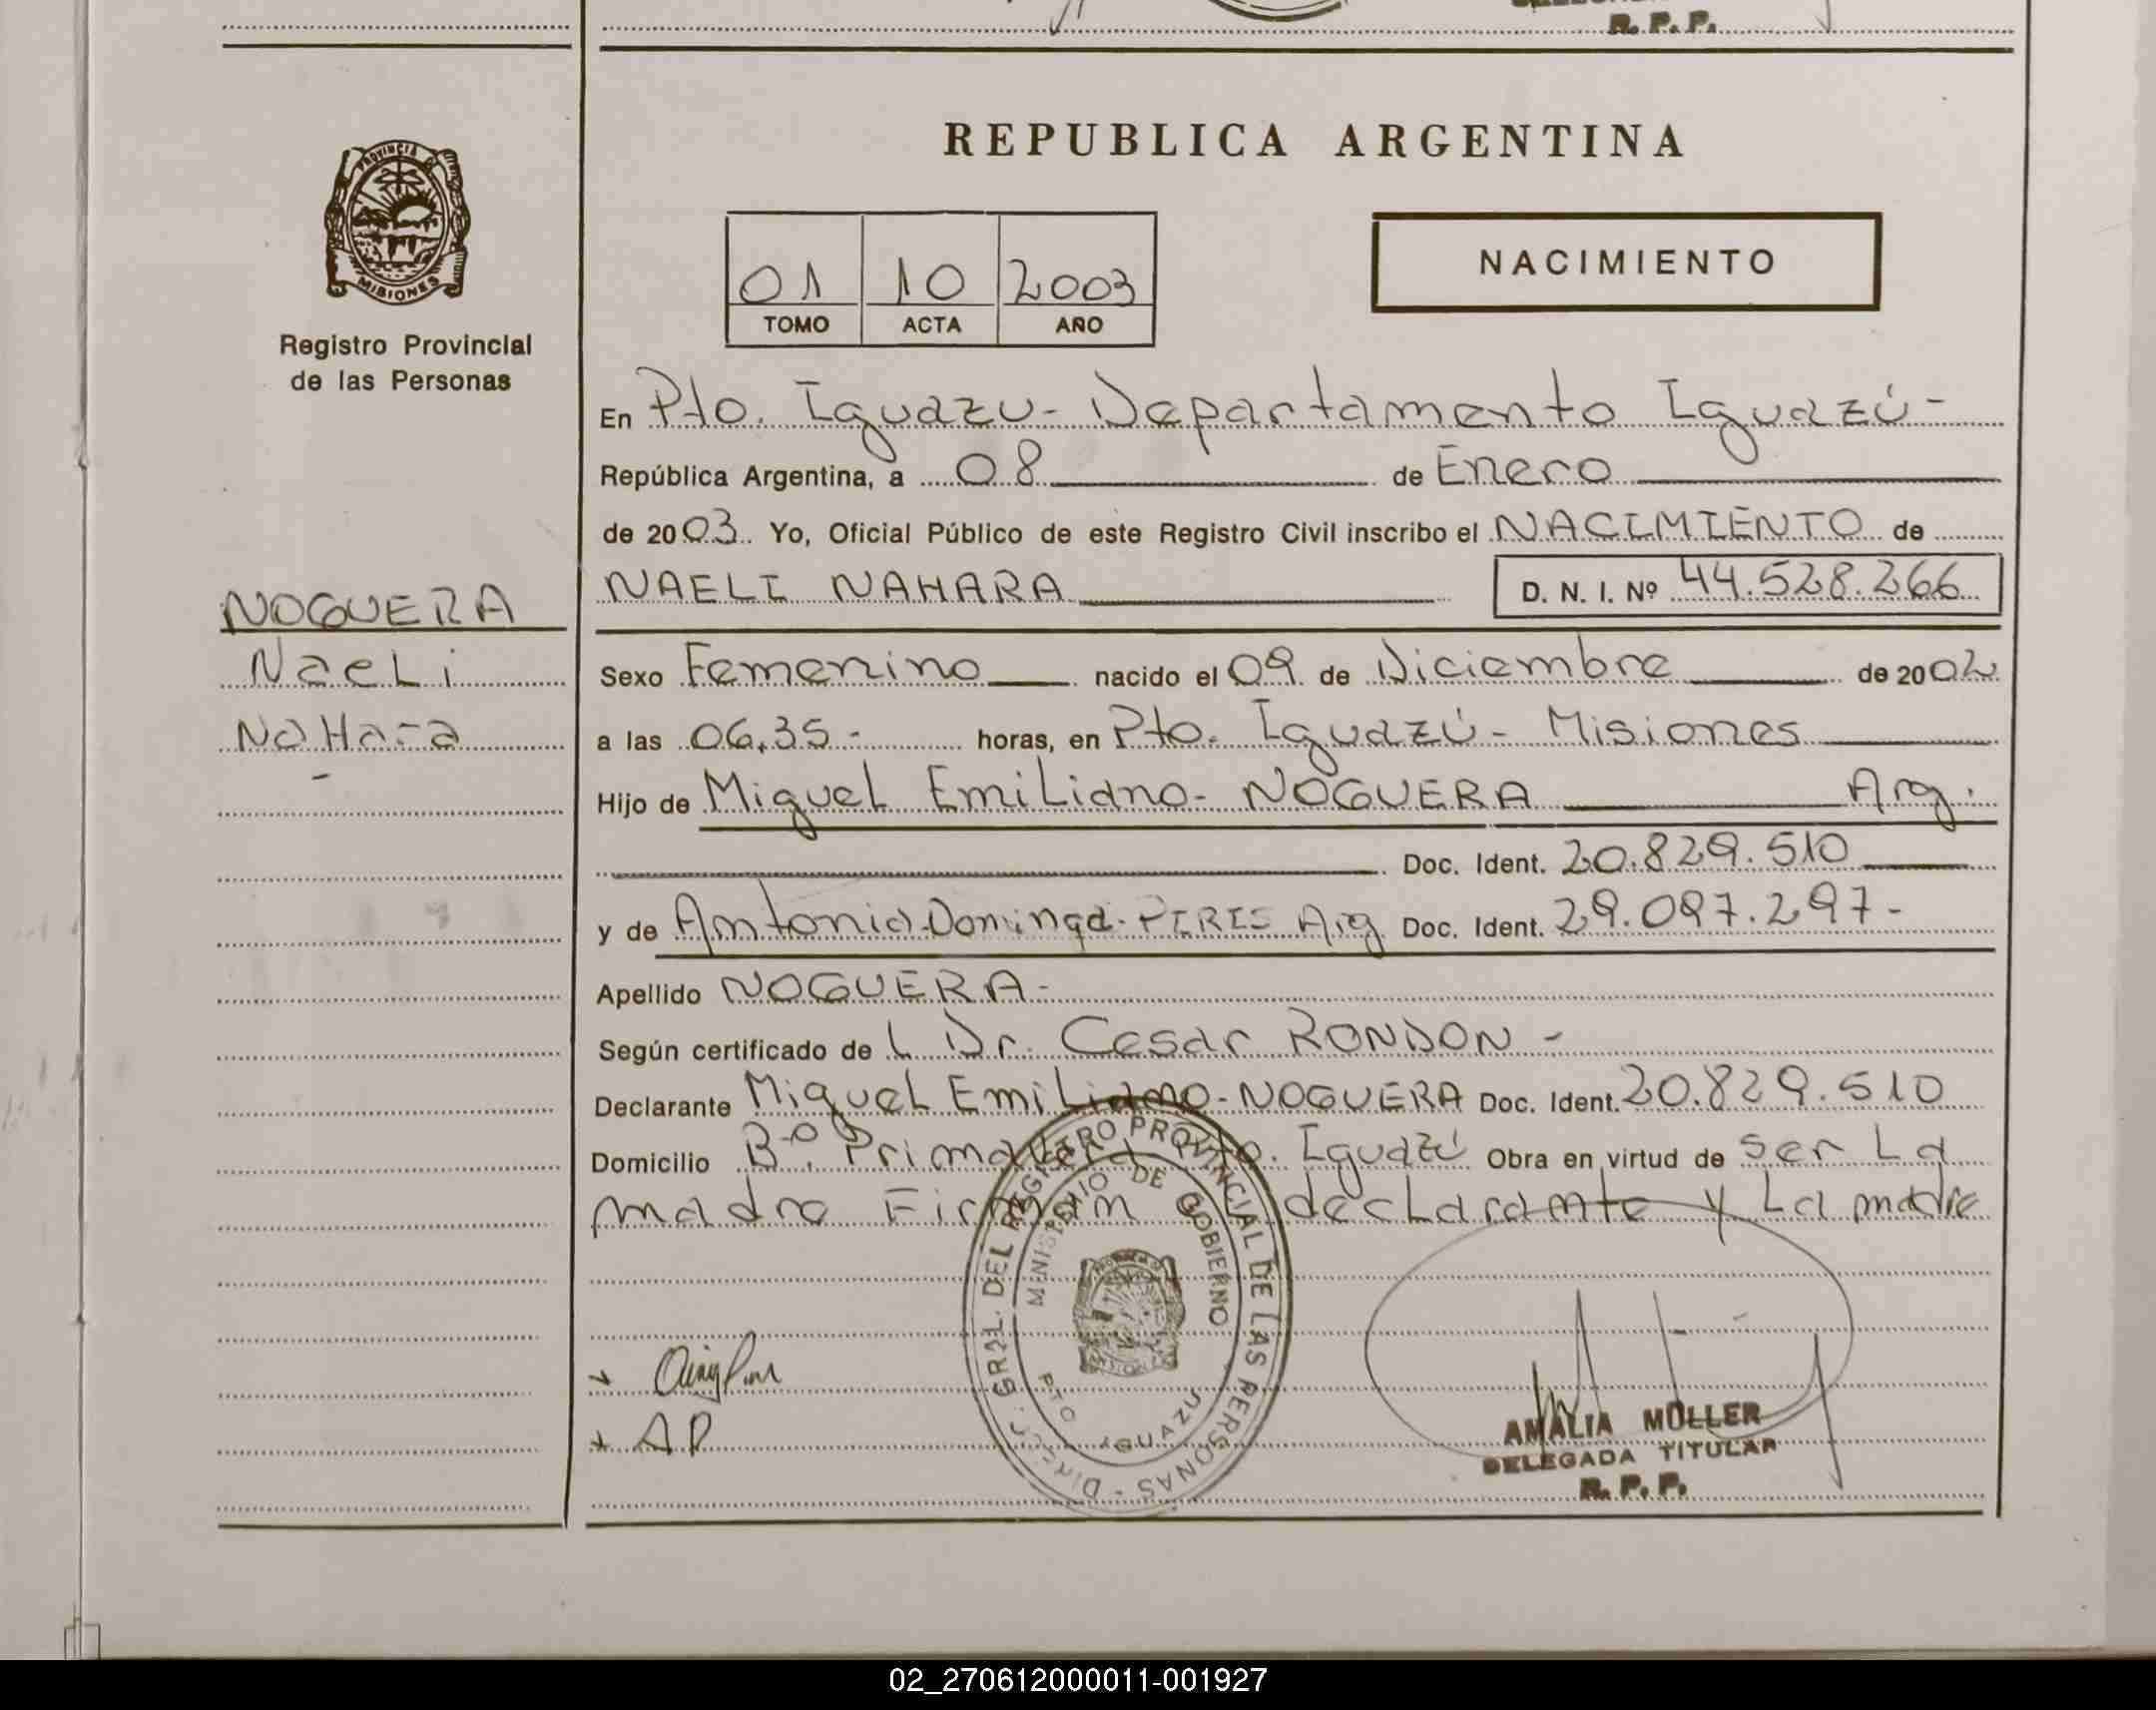 R. P. P.
REPUBLICA ARGENTINA
PROVINCIA D
MISIONES
Registro Provincial
de las Personas
01 10 2003
TOMO ACTA AÑO
NACIMIENTO
En Pto. Iguazu - Departamento Iguazú -
República Argentina, a 08 de Enero
de 2003. Yo, Oficial Público de este Registro Civil inscribo el NACIMIENTO de
NAELI NAHARA D. N. I. Nº 44.528.266
NOGUERA
Naeli
Nahara
-
Sexo Femenino nacido el 09 de Diciembre de 2002
a las 06,35 - horas, en Pto. Iguazú - Misiones
Hijo de Miguel Emiliano - NOGUERA Arg.
Doc. Ident. 20.829.510
y de Antonia Dominga - PIRIS Arg. Doc. Ident. 29.097.297 -
Apellido NOGUERA -
Según certificado de L Dr. Cesar RONDON -
Declarante Miguel Emiliano - NOGUERA Doc. Ident. 20.829.510
Domicilio Bº. Primavera Pto. Iguazú Obra en virtud de ser La
madre Firman el declarante y La madre
DIRECC. GRAL. DEL REGISTRO PROVINCIAL DE LAS PERSONAS -
MINISTERIO DE GOBIERNO
PTO IGUAZU
AP
AMALIA MULLER
DELEGADA TITULAR
R. P. P.
02_270612000011-001927